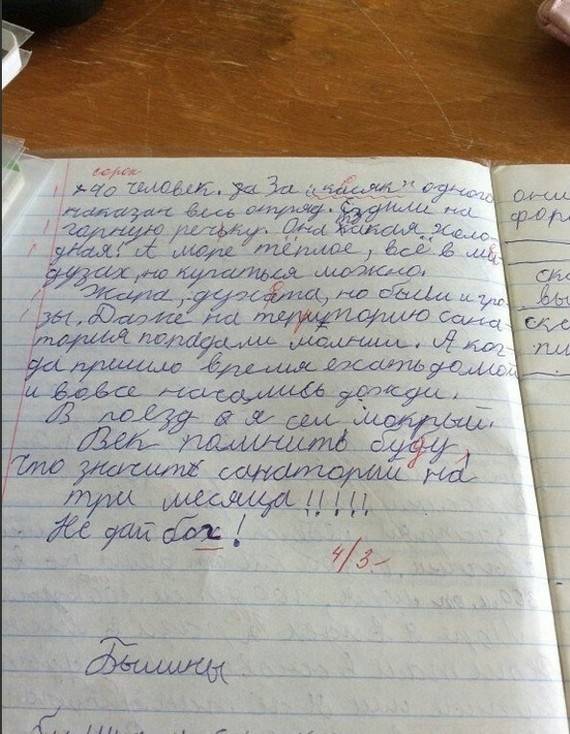 сорок
40 человек. За "косяк" одного
наказан весь отряд. Ездили на
горную речьку. Она какая холо-
дная! А море тёплое, всё в ме-
дузах, но купаться можно.
Жара, духота, но были и гро-
зы. Даже на територию сана-
тория попадали молнии. А ког-
да пришло время ехать домой
и вовсе начались дожди.
В поезд я сел мокрый.
Век помнить буду,
что значить санаторий на
три месяца!!!!!
Не дай бох!
4/3-
Былины
они
фор
ско
вы
ско